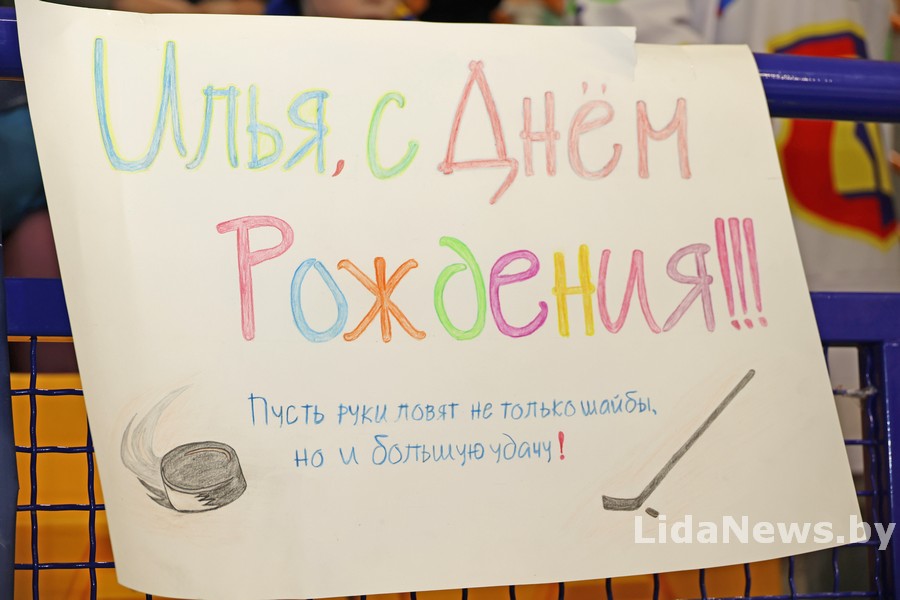 Илья, с Днём
Рождения!!!
Пусть руки ловят не только шайбы,
но и большую удачу!
LidaNews.by